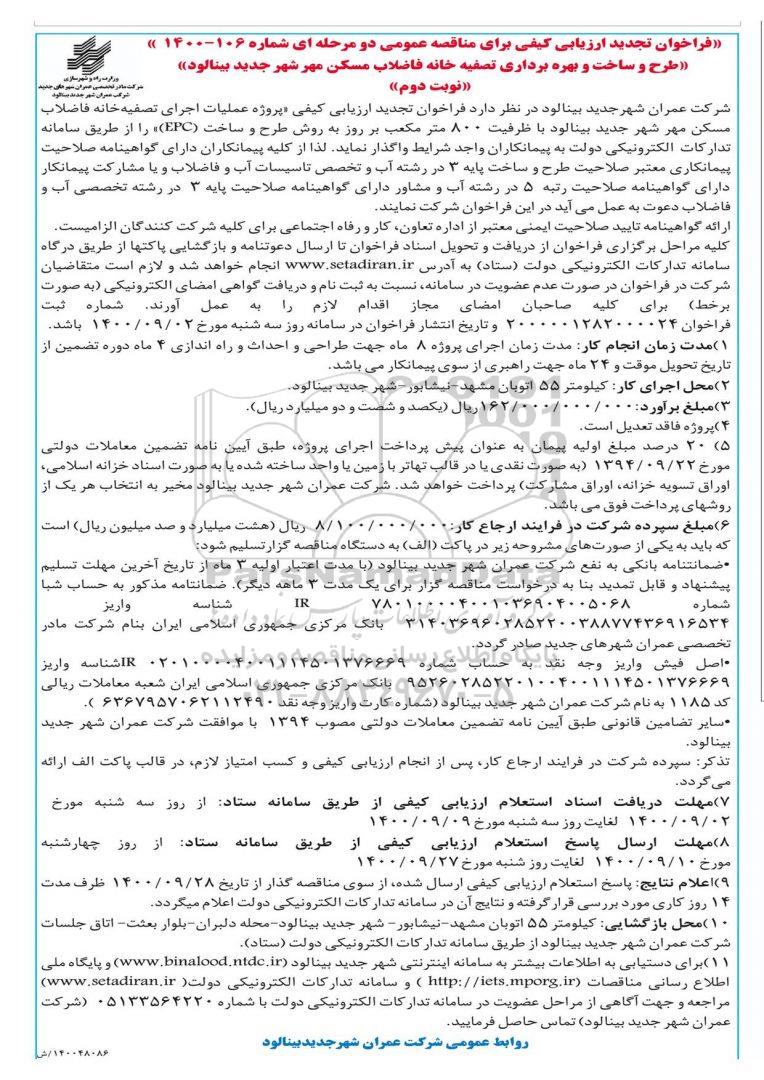 «فراخوان تجدید ارزیابی کیفی برای مناقصه عمومی دو مرحله ای شماره ۱۰۶-۱۴۰۰ »
«طرح و ساخت و بهره برداری تصفیه خانه فاضلاب مسکن مهر شهر جدید بینالود»
«نوبت دوم»
وزارت راه و شهرسازی
شرکت مادر تخصصی عمران شهرهای جدید
شرکت عمران شهر جدید بینالود
شرکت عمران شهرجدید بینالود در نظر دارد فراخوان تجدید ارزیابی کیفی «پروژه عملیات اجرای تصفیه‌خانه فاضلاب
مسکن مهر شهر جدید بینالود با ظرفیت ۸۰۰ متر مکعب بر روز به روش طرح و ساخت (EPC)» را از طریق سامانه
تدارکات الکترونیکی دولت به پیمانکاران واجد شرایط واگذار نماید. لذا از کلیه پیمانکاران دارای گواهینامه صلاحیت
پیمانکاری معتبر صلاحیت طرح و ساخت پایه ۳ در رشته آب و تخصص تاسیسات آب و فاضلاب و یا مشارکت پیمانکار
دارای گواهینامه صلاحیت رتبه ۵ در رشته آب و مشاور دارای گواهینامه صلاحیت پایه ۳ در رشته تخصصی آب و
فاضلاب دعوت به عمل می آید در این فراخوان شرکت نمایند.
ارائه گواهینامه تایید صلاحیت ایمنی معتبر از اداره تعاون، کار و رفاه اجتماعی برای کلیه شرکت کنندگان الزامیست.
کلیه مراحل برگزاری فراخوان از دریافت و تحویل اسناد فراخوان تا ارسال دعوتنامه و بازگشایی پاکتها از طریق درگاه
سامانه تدارکات الکترونیکی دولت (ستاد) به آدرس www.setadiran.ir انجام خواهد شد و لازم است متقاضیان
شرکت در فراخوان در صورت عدم عضویت در سامانه، نسبت به ثبت نام و دریافت گواهی امضای الکترونیکی (به صورت
برخط) برای کلیه صاحبان امضای مجاز اقدام لازم را به عمل آورند. شماره ثبت
فراخوان ۲۰۰۰۰۰۱۲۸۲۰۰۰۰۲۴ و تاریخ انتشار فراخوان در سامانه روز سه شنبه مورخ ۱۴۰۰/۰۹/۰۲ باشد.
۱)مدت زمان انجام کار: مدت زمان اجرای پروژه ۸ ماه جهت طراحی و احداث و راه اندازی ۴ ماه دوره تضمین از
تاریخ تحویل موقت و ۲۴ ماه جهت راهبری از سوی پیمانکار می باشد.
۲)محل اجرای کار: کیلومتر ۵۵ اتوبان مشهد-نیشابور-شهر جدید بینالود.
۳)مبلغ برآورد: ۱۶۲/۰۰۰/۰۰۰/۰۰۰ریال (یکصد و شصت و دو میلیارد ریال).
۴)پروژه فاقد تعدیل است.
۵) ۲۰ درصد مبلغ اولیه پیمان به عنوان پیش پرداخت اجرای پروژه، طبق آیین نامه تضمین معاملات دولتی
مورخ ۱۳۹۴/۰۹/۲۲ (به صورت نقدی یا در قالب تهاتر با زمین یا واحد ساخته شده یا به صورت اسناد خزانه اسلامی،
اوراق تسویه خزانه، اوراق مشارکت) پرداخت خواهد شد. شرکت عمران شهر جدید بینالود مخیر به انتخاب هر یک از
روشهای پرداخت فوق می باشد.
۶)مبلغ سپرده شرکت در فرایند ارجاع کار: ۸/۱۰۰/۰۰۰/۰۰۰ ریال (هشت میلیارد و صد میلیون ریال) است
که باید به یکی از صورت‌های مشروحه زیر در پاکت (الف) به دستگاه مناقصه گزار تسلیم شود:
•ضمانتنامه بانکی به نفع شرکت عمران شهر جدید بینالود (با مدت اعتبار اولیه ۳ ماه از تاریخ آخرین مهلت تسلیم
پیشنهاد و قابل تمدید بنا به درخواست مناقصه گزار برای یک مدت ۳ ماهه دیگر). ضمانتامه مذکور به حساب شبا
شماره ۷۸۰۱۰۰۰۰۴۰۰۱۰۳۶۹۰۴۰۰۵۰۶۸ IR شناسه واریز
۳۱۴۰۳۶۹۶۰۲۸۵۲۲۰۰۳۸۸۷۷۴۳۶۹۱۶۵۳۴ بانک مرکزی جمهوری اسلامی ایران بنام شرکت مادر
تخصصی عمران شهرهای جدید صادر گردد.
•اصل فیش واریز وجه نقد به حساب شماره ۰۲۰۱۰۰۰۰۴۰۰۱۱۱۴۵۰۱۳۷۶۶۶۹ IRشناسه واریز
۹۵۲۶۰۲۸۵۲۲۰۱۰۰۴۰۰۱۱۱۴۵۰۱۳۷۶۶۶۹ بانک مرکزی جمهوری اسلامی ایران شعبه معاملات ریالی
کد ۱۱۸۵ به نام شرکت عمران شهر جدید بینالود (شماره کارت واریز وجه نقد ۶۳۶۷۹۵۷۰۶۲۱۱۲۴۹۰ ).
•سایر تضامین قانونی طبق آیین نامه تضمین معاملات دولتی مصوب ۱۳۹۴ با موافقت شرکت عمران شهر جدید
بینالود.
تذکر: سپرده شرکت در فرایند ارجاع کار، پس از انجام ارزیابی کیفی و کسب امتیاز لازم، در قالب پاکت الف ارائه
می‌گردد.
۷)مهلت دریافت اسناد استعلام ارزیابی کیفی از طریق سامانه ستاد: از روز سه شنبه مورخ
۱۴۰۰/۰۹/۰۲ لغایت روز سه شنبه مورخ ۱۴۰۰/۰۹/۰۹
۸)مهلت ارسال پاسخ استعلام ارزیابی کیفی از طریق سامانه ستاد: از روز چهارشنبه
مورخ ۱۴۰۰/۰۹/۱۰ لغایت روز شنبه مورخ ۱۴۰۰/۰۹/۲۷
۹)اعلام نتایج: پاسخ استعلام ارزیابی کیفی ارسال شده، از سوی مناقصه گذار از تاریخ ۱۴۰۰/۰۹/۲۸ ظرف مدت
۱۴ روز کاری مورد بررسی قرار گرفته و نتایج آن در سامانه تدارکات الکترونیکی دولت اعلام میگردد.
۱۰)محل بازگشایی: کیلومتر ۵۵ اتوبان مشهد-نیشابور- شهر جدید بینالود-محله دلبران-بلوار بعثت- اتاق جلسات
شرکت عمران شهر جدید بینالود از طریق سامانه تدارکات الکترونیکی دولت (ستاد).
۱۱)برای دستیابی به اطلاعات بیشتر به سامانه اینترنتی شهر جدید بینالود (www.binalood.ntdc.ir) و پایگاه ملی
اطلاع رسانی مناقصات (http://iets.mporg.ir ) و سامانه تدارکات الکترونیکی دولت( www.setadiran.ir)
مراجعه و جهت آگاهی از مراحل عضویت در سامانه تدارکات الکترونیکی دولت با شماره ۰۵۱۳۳۵۶۴۲۲۰ (شرکت
عمران شهر جدید بینالود) تماس حاصل فرمایید.
روابط عمومی شرکت عمران شهرجدیدبینالود
۱۴۰۰۴۸۰۸۶/ش